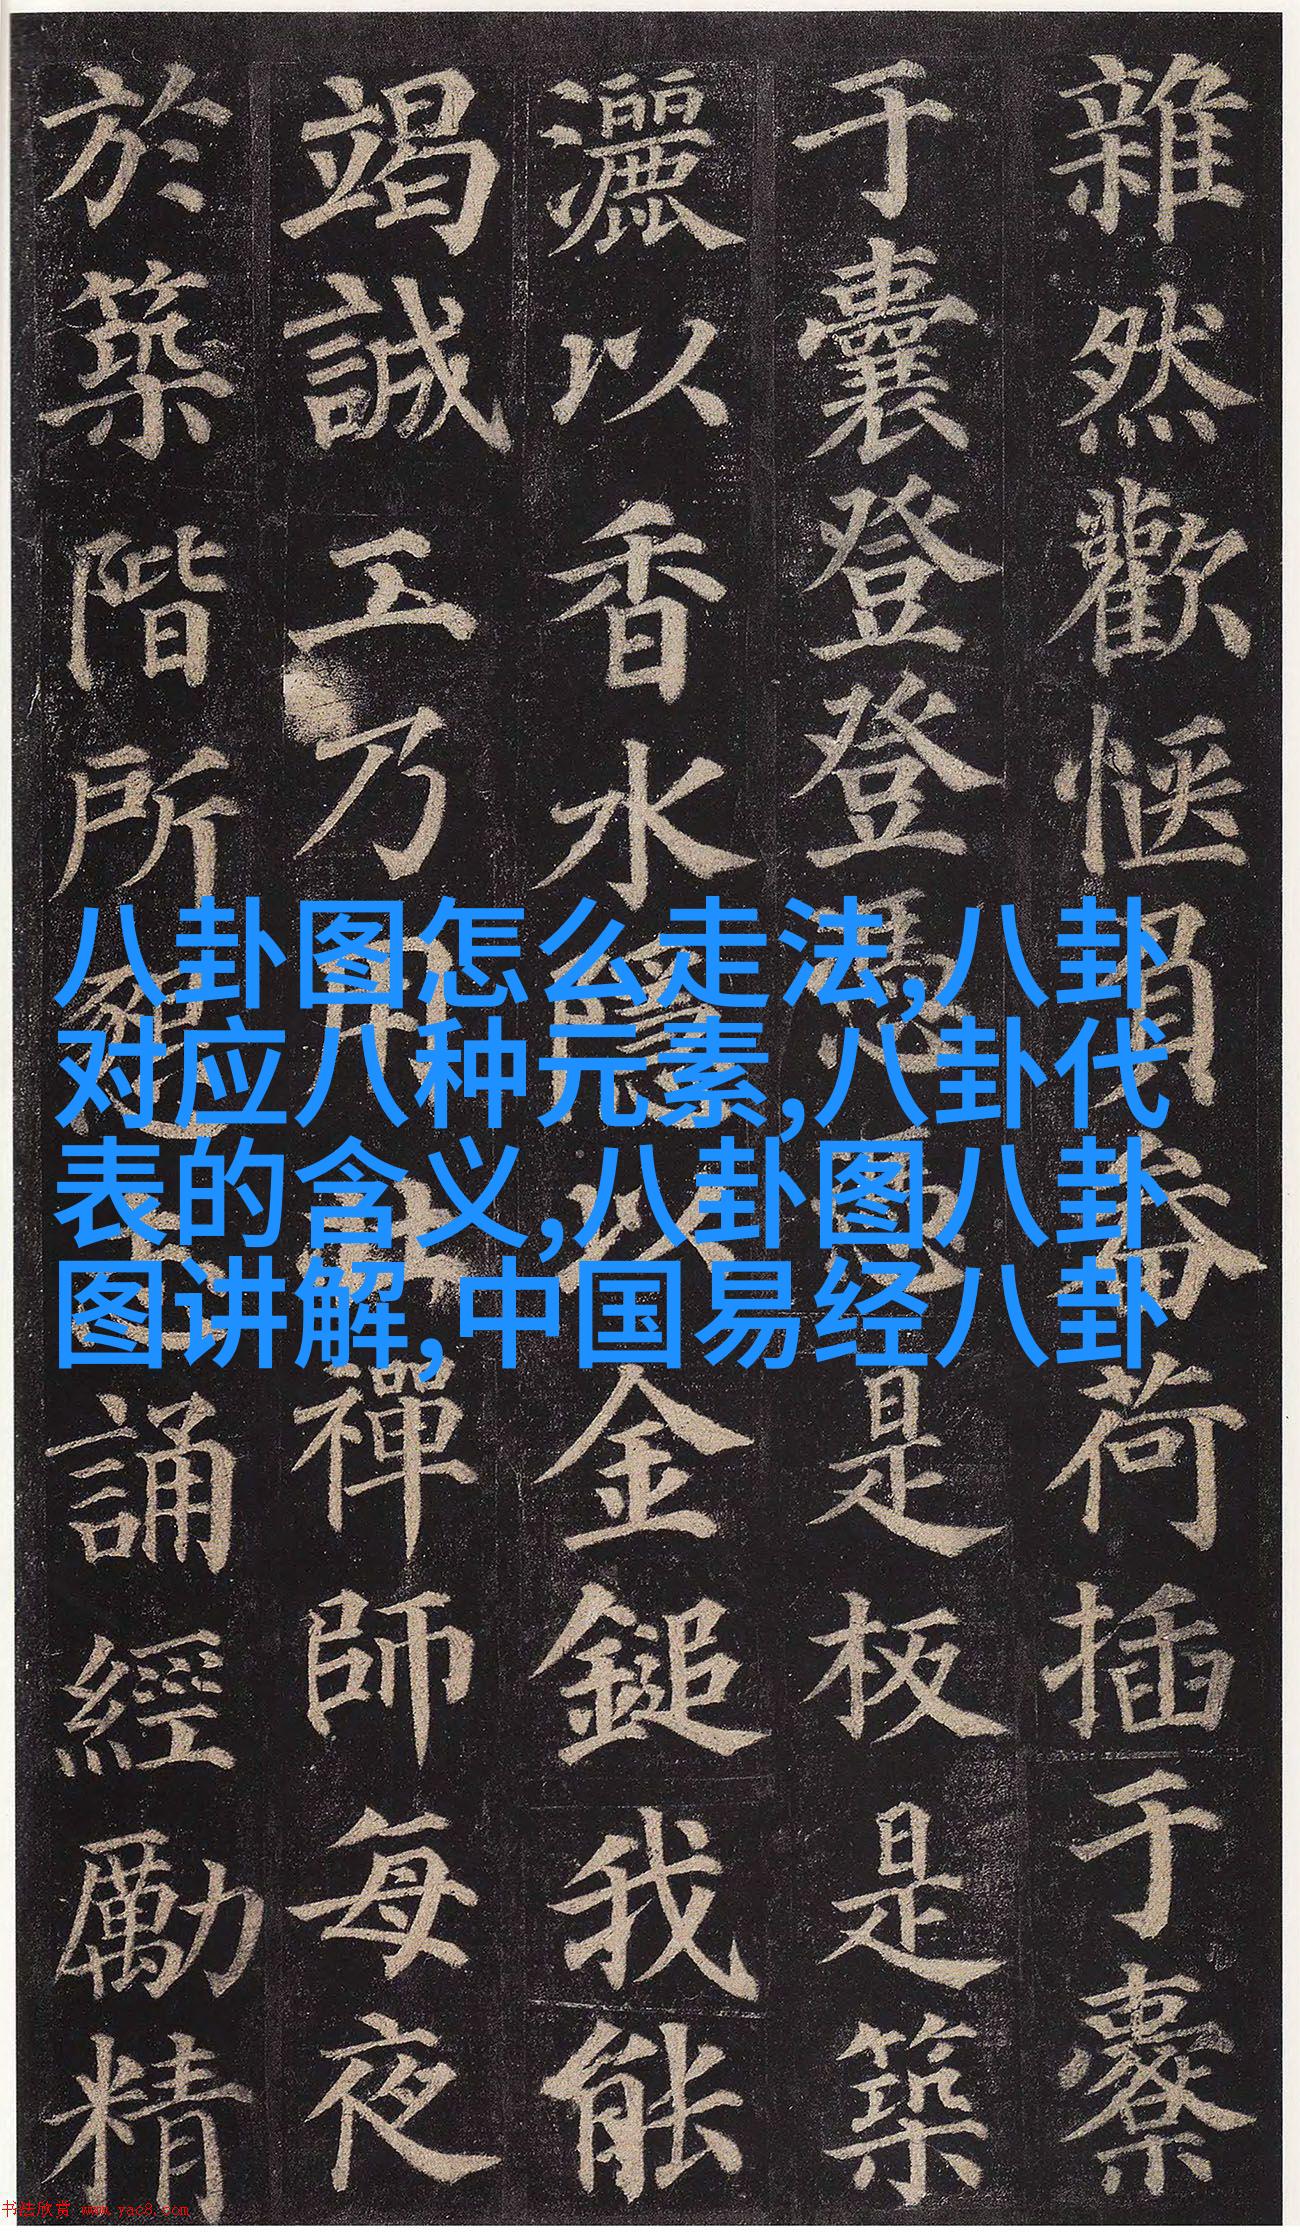 雜然歡愜負畚荷插于橐
于囊登登憑憑是板是築
灑以香水隱以金鎚我能
竭誠工乃用壯禪師每夜
於築階所懇志誦經勵精
八卦图怎么走法,八卦
对应八种元素,八卦代
表的含义,八卦图八卦
图讲解, 中国易经八卦
书法欣赏 www.yac8.com